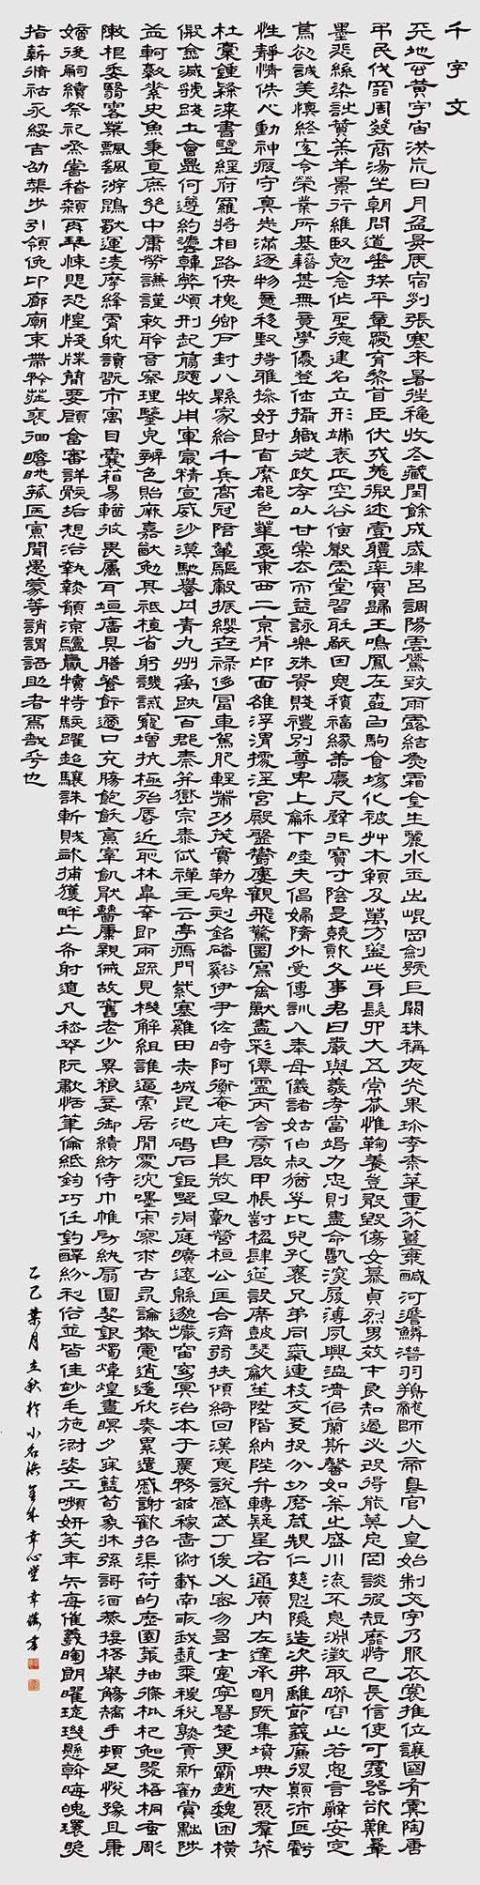 千字文
天地玄黃宇宙洪荒日月盈昃辰宿列張寒來暑往秋收冬藏閏餘成歲律呂調陽雲騰致雨露結為霜金生麗水玉出崐岡劍號巨闕珠稱夜光果珍李柰菜重芥薑海鹹河澹鱗潛羽翔龍師火帝鳥官人皇始制文字乃服衣裳推位讓國有虞陶唐
弔民伐罪周發商湯坐朝問道垂拱平章愛育黎首臣伏戎羌遐迩壹體率賓歸王鳴鳳在樹白駒食場化被艸木賴及萬方蓋此身髮四大五常恭惟鞠養豈敢毀傷女慕貞烈男效才良知過必改得能莫忘罔談彼短靡恃己長信使可覆器欲難量
墨悲絲染詩贊羔羊景行維賢克念作聖德建名立形端表正空谷傳聲虛堂習聽禍因惡積福緣善慶尺璧非寶寸陰是競資父事君曰嚴與敬孝當竭力忠則盡命臨深履薄夙興溫凊似蘭斯馨如松之盛川流不息淵澄取暎容止若思言辭安定
篤初誠美慎終宜令榮業所基籍甚無竟學優登仕攝職從政存以甘棠去而益詠樂殊貴賤禮別尊卑上和下睦夫唱婦隨外受傅訓入奉母儀諸姑伯叔猶子比兒孔懷兄弟同氣連枝交友投分切磨箴規仁慈隱惻造次弗離節義廉退顛沛匪虧
性靜情逸心動神疲守真志滿逐物意移堅持雅操好爵自縻都邑華夏東西二京背邙面雒浮渭據涇宮殿盤鬱樓觀飛驚圖寫禽獸畫彩僊靈丙舍旁啟甲帳對楹肆筵設席鼓瑟吹笙陞階納陛弁轉疑星右通廣內左達承明既集墳典亦聚群英
杜稾鍾隸漆書壁經府羅將相路俠槐卿戶封八縣家給千兵高冠陪輦驅轂振纓世祿侈富車駕肥輕策功茂實勒碑刻銘磻谿伊尹佐時阿衡奄宅曲阜微旦孰營桓公匡合濟弱扶傾綺回漢惠說感武丁俊乂密勿多士寔寧晉楚更霸趙魏困橫
假途滅虢踐土會盟何遵約法韓弊煩刑起翦頗牧用軍最精宣威沙漠馳譽丹青九州禹跡百郡秦并嶽宗泰岱禪主云亭鴈門紫塞雞田赤城昆池碣石鉅野洞庭曠遠緜邈巖岫窅冥治本于農務茲稼穡俶載南畝我藝黍稷稅熟貢新勸賞黜陟
孟軻敦素史魚秉直庶幾中庸勞謙謹敕聆音察理鑒皃辨色貽厥嘉猷勉其祗植省躬譏誡寵增抗極殆辱近恥林皋幸即兩疏見機解組誰逼索居閒處沈嘿寂寥求古尋論散慮逍遙欣奏累遣慼謝歡招渠荷的歷園莽抽條枇杷晚翠梧桐蚤凋
陳根委翳落葉飄颻游鵾獨運淩摩絳霄耽讀翫市寓目囊箱易輶攸畏屬耳垣牆具膳餐飯適口充腸飽飫烹宰飢厭糟穅親戚故舊老少異糧妾御績紡侍巾帷房紈扇圓絜銀燭煒煌晝瞑夕寐藍筍象牀弦謌酒讌接桮舉觴矯手頓足悅豫且康
嫡後嗣續祭祀烝嘗稽顙再拜悚懼恐惶牋牒簡要顧畣審詳骸垢想浴執熱願涼驢騾犢特駭躍超驤誅斬賊盜捕獲畔亡布射遼丸嵇琴阮嘯恬筆倫紙鈞巧任釣釋紛利俗並皆佳玅毛施淑姿工嚬妍笑年矢每催羲暉朗曜琁璣懸斡晦魄環照
指薪脩祜永綏吉劭榘步引領俛卬廊廟束帶矜莊裵回瞻眺孤陋寡聞愚蒙等誚謂語助者焉哉乎也
乙巳葉月立秋於小名浜